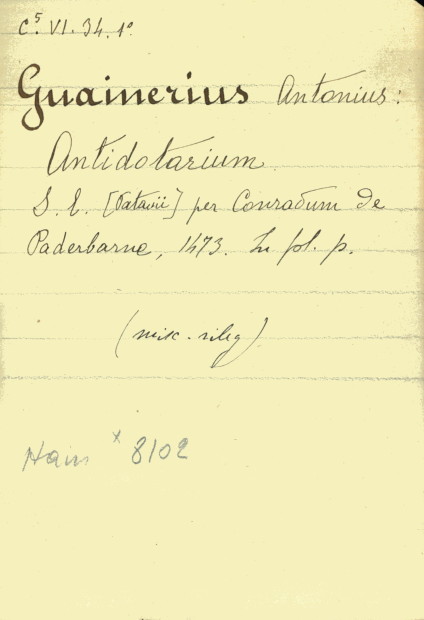 C⁵. VI. 34. 1º
Guainerius Antonius:
Antidotarium
S. l. [Patavii] per Conradum de
Paderbarne, 1473. In fol. p.
(misc. rileg)
Hain * 8102